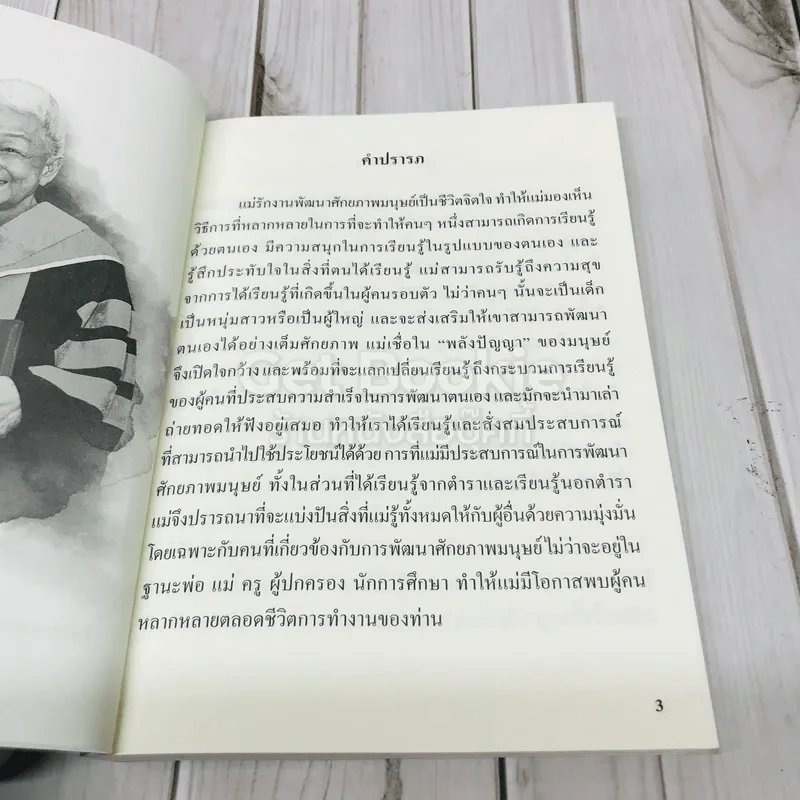 คำปรารภ
แม่รักงานพัฒนาศักยภาพมนุษย์เป็นชีวิตจิตใจ ทำให้แม่มองเห็น
วิธีการที่หลากหลายในการที่จะทำให้คนๆ หนึ่งสามารถเกิดการเรียนรู้
ด้วยตนเอง มีความสนุกในการเรียนรู้ในรูปแบบของตนเอง และ
รู้สึกประทับใจในสิ่งที่ตนได้เรียนรู้ แม่สามารถรับรู้ถึงความสุข
จากการได้เรียนรู้ที่เกิดขึ้นในผู้คนรอบตัว ไม่ว่าคนๆ นั้นจะเป็นเด็ก
เป็นหนุ่มสาวหรือเป็นผู้ใหญ่ และจะส่งเสริมให้เขาสามารถพัฒนา
ตนเองได้อย่างเต็มศักยภาพ แม่เชื่อใน “พลังปัญญา” ของมนุษย์
จึงเปิดใจกว้าง และพร้อมที่จะแลกเปลี่ยนเรียนรู้ ถึงกระบวนการเรียนรู้
ของผู้คนที่ประสบความสำเร็จในการพัฒนาตนเอง และมักจะนำมาเล่า
ถ่ายทอดให้ฟังอยู่เสมอ ทำให้เราได้เรียนรู้และสั่งสมประสบการณ์
ที่สามารถนำไปใช้ประโยชน์ได้ด้วย การที่แม่มีประสบการณ์ในการพัฒนา
ศักยภาพมนุษย์ ทั้งในส่วนที่ได้เรียนรู้จากตำราและเรียนรู้นอกตำรา
แม่จึงปรารถนาที่จะแบ่งปันสิ่งที่แม่รู้ทั้งหมดให้กับผู้อื่นด้วยความมุ่งมั่น
โดยเฉพาะกับคนที่เกี่ยวข้องกับการพัฒนาศักยภาพมนุษย์ ไม่ว่าจะอยู่ใน
ฐานะพ่อ แม่ ครู ผู้ปกครอง นักการศึกษา ทำให้แม่มีโอกาสพบผู้คน
หลากหลายตลอดชีวิตการทำงานของท่าน
3
Get Bookie
ร้านหนังสือบุ๊คกี้